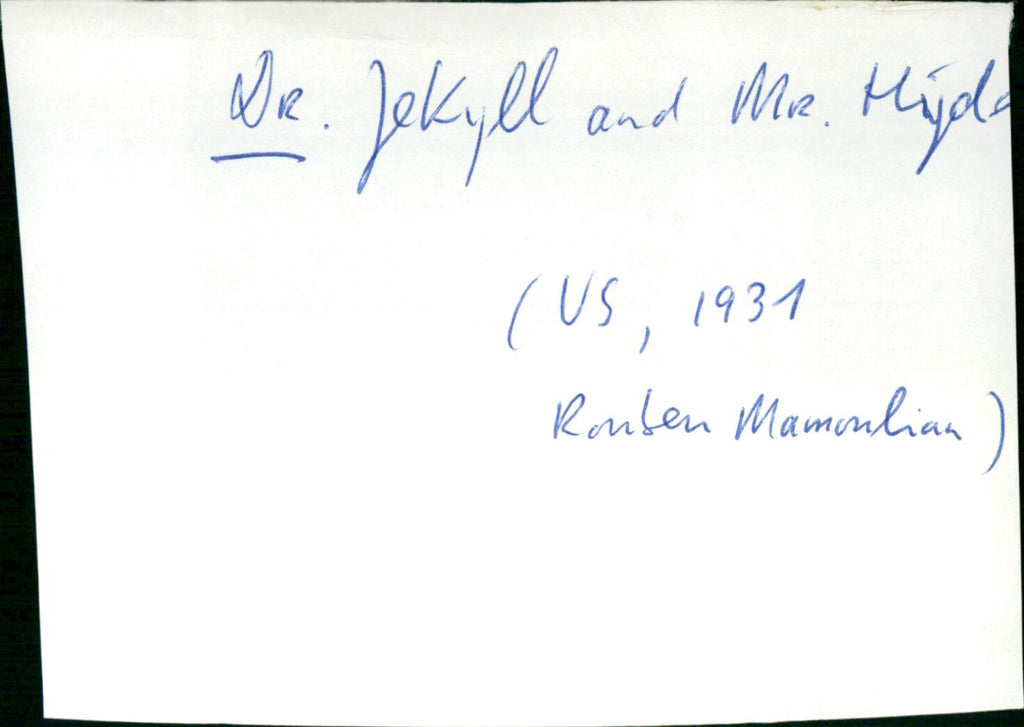 Dr. Jekyll and Mr. Hyde
(US, 1931
Rouben Mamoulian)